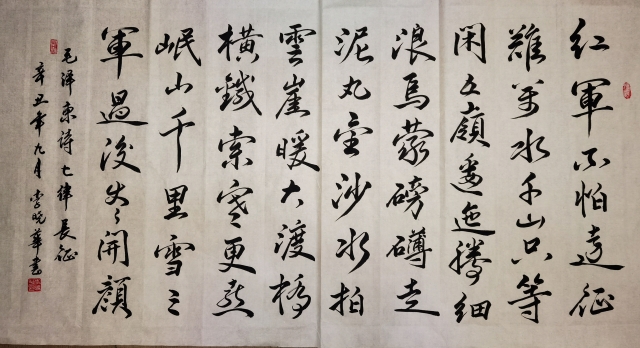 红軍不怕遠征
難萬水千山只等
闲五嶺逶迤腾細
浪烏蒙磅礴走
泥丸金沙水拍
雲崖暖大渡橋
横鐵索寒更喜
岷山千里雪三
軍過後尽開顔
毛泽東诗七律長征
辛丑年九月李晓華書